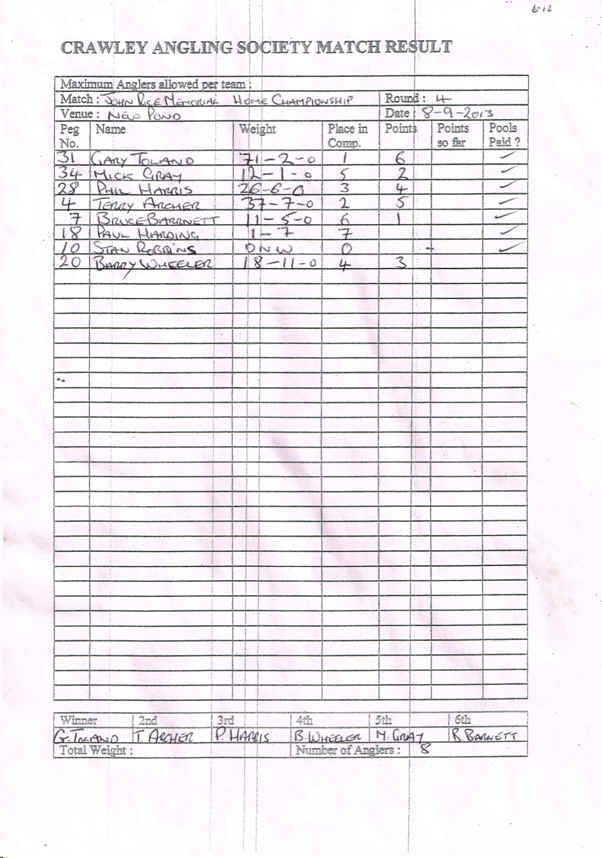 6-12
CRAWLEY ANGLING SOCIETY MATCH RESULT
Maximum Anglers allowed per team :
Match : JOHN RICE MEMORIAL HOME CHAMPIONSHIP Round : 4
Venue : NEW POND Date : 8-9-2013
Peg No. Name Weight Place in Comp. Points Points so far Pools Paid ?
31 GARY TOLAND 71-2-0 1 6 ✓
34 MICK GRAY 12-1-0 5 2 ✓
28 PHIL HARRIS 26-6-0 3 4 ✓
4 TERRY ARCHER 37-7-0 2 5 ✓
7 BRUCE BARRNETT 11-5-0 6 1 ✓
18 PAUL HARDING 1-7 7 ✓
10 STAN ROBBINS DNW 0 - ✓
20 BARRY WHEELER 18-11-0 4 3
Winner 2nd 3rd 4th 5th 6th
G. TOLAND T ARCHER P HARRIS B. WHEELER M GRAY R BARNETT
Total Weight : Number of Anglers : 8